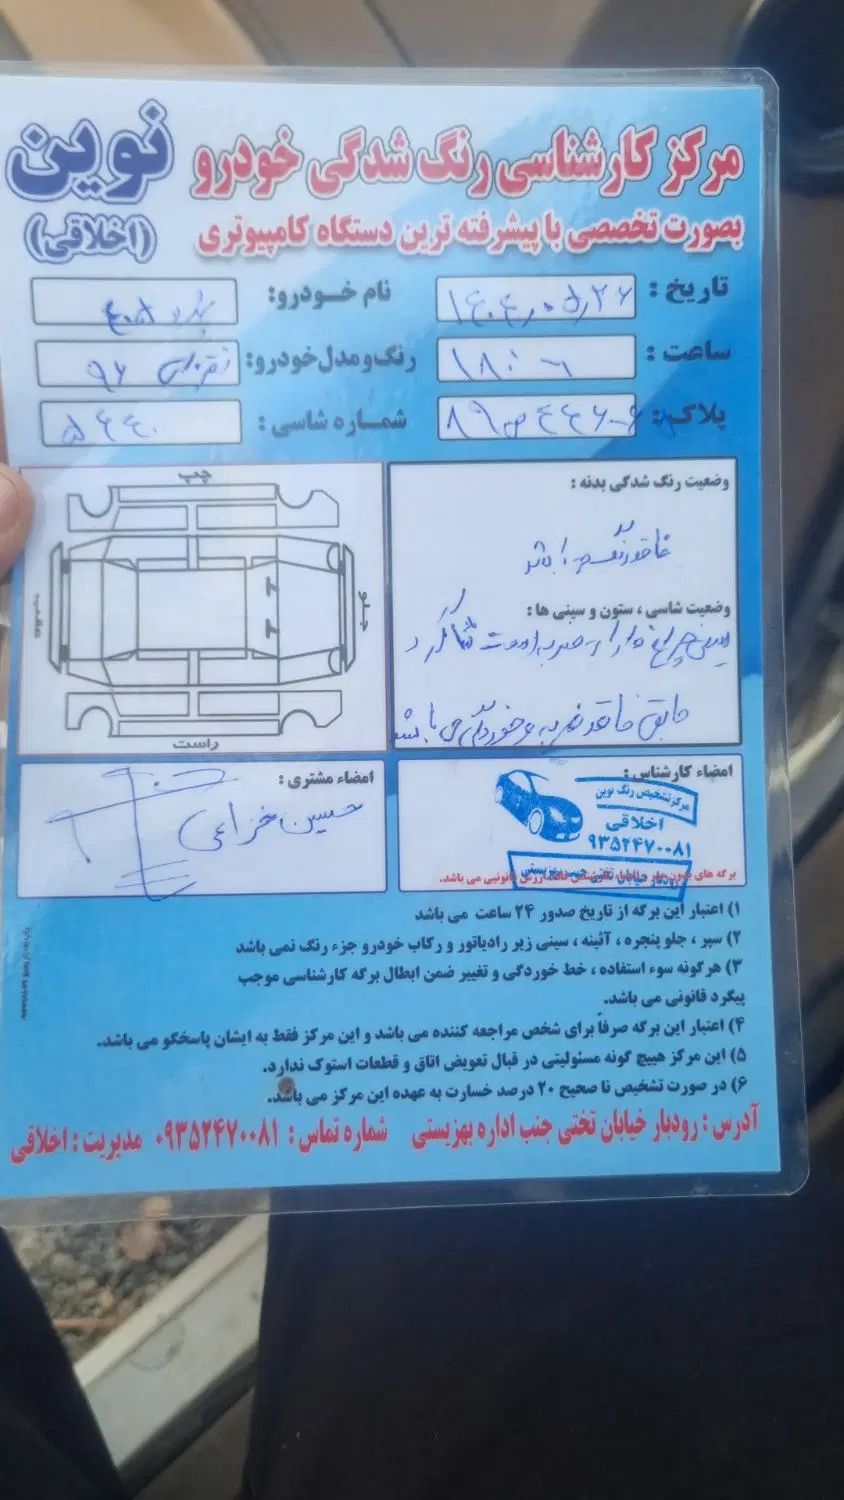 نوین
مرکز کارشناسی رنگ شدگی خودرو
بصورت تخصصی با پیشرفته ترین دستگاه کامپیوتری
(اخلاقی)
تاریخ : ۱۴۰۴,۰۵,۲۶
نام خودرو:
ساعت :
رنگ و مدل خودرو: نقره‌ای ۹۶
پلاک :
شماره شاسی : ۵۴۴۰
وضعیت رنگ شدگی بدنه :
فاقد رنگ می باشد
وضعیت شاسی ، ستون و سینی ها :
سینی چراغ دارای ضربه است شاگرد
مابقی فاقد ضربه و خوردگی می باشد
چپ
جلو
عقب
راست
امضاء کارشناس :
مرکز تشخیص رنگ نوین
اخلاقی
۹۳۵۲۴۷۰۰۸۱
امضاء مشتری :
حسین خزاعی
برگه های بدون مهر و امضاء کارشناس فاقد ارزش قانونی می باشد.
۱) اعتبار این برگه از تاریخ صدور ۲۴ ساعت می باشد
۲) سپر ، جلو پنجره ، آئینه ، سینی زیر رادیاتور و رکاب خودرو جزء رنگ نمی باشد
۳) هرگونه سوء استفاده ، خط خوردگی و تغییر ضمن ابطال برگه کارشناسی موجب
پیگرد قانونی می باشد.
۴) اعتبار این برگه صرفاً برای شخص مراجعه کننده می باشد و این مرکز فقط به ایشان پاسخگو می باشد.
۵) این مرکز هیچ گونه مسئولیتی در قبال تعویض اتاق و قطعات استوک ندارد.
۶) در صورت تشخیص نا صحیح ۲۰ درصد خسارت به عهده این مرکز می باشد.
آدرس : رودبار خیابان تختی جنب اداره بهزیستی شماره تماس : ۰۹۳۵۲۴۷۰۰۸۱ مدیریت : اخلاقی